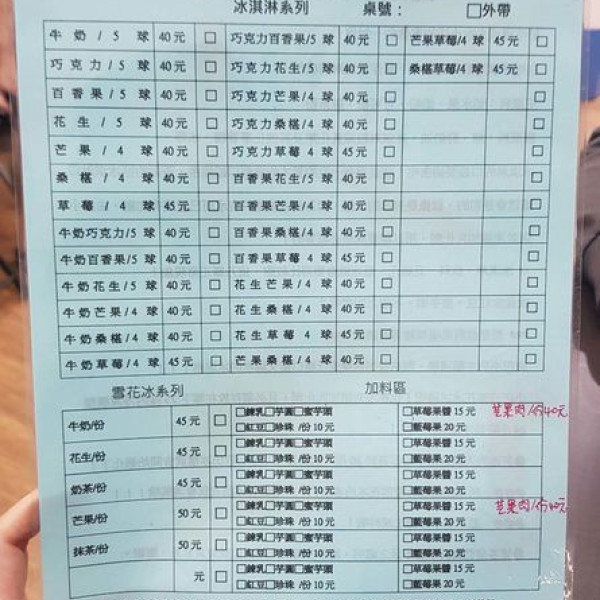 冰淇淋系列 桌號： □外帶
牛奶/5球 40元 □ 巧克力百香果/5球 40元 □ 芒果草莓/4球 45元 □
巧克力/5球 40元 □ 巧克力花生/5球 40元 □ 桑椹草莓/4球 45元 □
百香果/5球 40元 □ 巧克力芒果/4球 40元 □ □
花生/5球 40元 □ 巧克力桑椹/4球 40元 □ □
芒果/4球 40元 □ 巧克力草莓 4球 45元 □ □
桑椹/4球 40元 □ 百香果花生/5球 40元 □ □
草莓/4球 45元 □ 百香果芒果/4球 40元 □ □
牛奶巧克力/5球 40元 □ 百香果桑椹/4球 40元 □ □
牛奶百香果/5球 40元 □ 百香果草莓 4球 45元 □ □
牛奶花生/5球 40元 □ 花生芒果/4球 40元 □ □
牛奶芒果/4球 40元 □ 花生桑椹/4球 40元 □ □
牛奶桑椹/4球 40元 □ 花生草莓 4球 45元 □ □
牛奶草莓/4球 45元 □ 芒果桑椹/4球 40元 □ □
雪花冰系列 加料區
牛奶/份 45元 □ □鍊乳□芋圓□蜜芋頭 □草莓果醬15元 芒果肉/份40元
□紅豆□珍珠 /份10元 □藍莓果20元
花生/份 45元 □ □鍊乳□芋圓□蜜芋頭 □草莓果醬15元
□紅豆□珍珠 /份10元 □藍莓果20元
奶茶/份 45元 □ □鍊乳□芋圓□蜜芋頭 □草莓果醬15元
□紅豆□珍珠 /份10元 □藍莓果20元
芒果/份 50元 □ □鍊乳□芋圓□蜜芋頭 □草莓果醬15元 芒果肉/份40元
□紅豆□珍珠 /份10元 □藍莓果20元
抹茶/份 50元 □ □鍊乳□芋圓□蜜芋頭 □草莓果醬15元
□紅豆□珍珠 /份10元 □藍莓果20元
元 □ □鍊乳□芋圓□蜜芋頭 □草莓果醬15元
□紅豆□珍珠 /份10元 □藍莓果20元